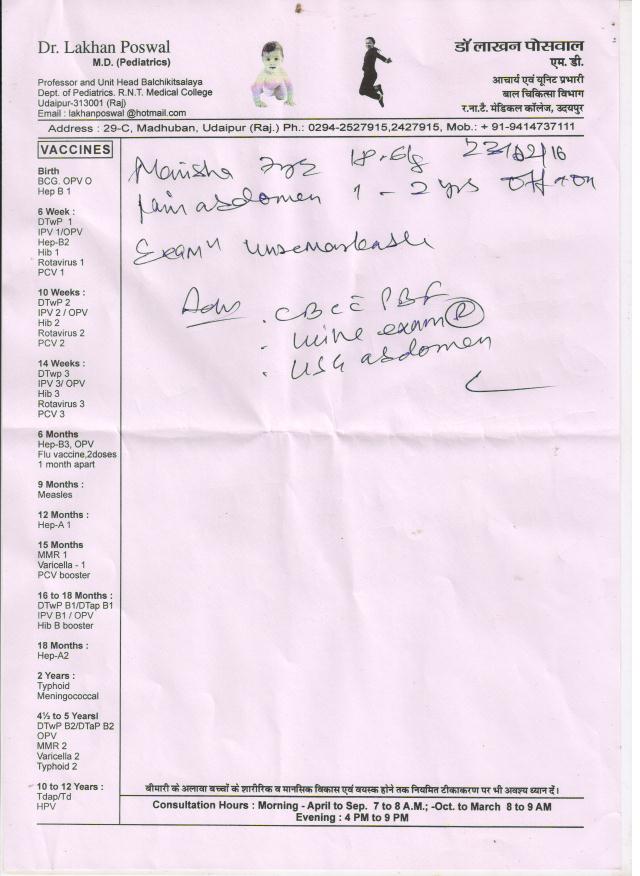 Dr. Lakhan Poswal
M.D. (Pediatrics)
Professor and Unit Head Balchikitsalaya
Dept. of Pediatrics. R.N.T. Medical College
Udaipur-313001 (Raj)
Email : lakhanposwal @hotmail.com
डॉ लाखन पोसवाल
एम. डी.
आचार्य एवं यूनिट प्रभारी
बाल चिकित्सा विभाग
र.ना.टै. मेडिकल कॉलेज, उदयपुर
Address : 29-C, Madhuban, Udaipur (Raj.) Ph.: 0294-2527915,2427915, Mob.: + 91-9414737111
VACCINES
Birth
BCG, OPV O
Hep B 1
6 Week :
DTwP 1
IPV 1/OPV
Hep-B2
Hib 1
Rotavirus 1
PCV 1
10 Weeks :
DTwP 2
IPV 2 / OPV
Hib 2
Rotavirus 2
PCV 2
14 Weeks :
DTwp 3
IPV 3/ OPV
Hib 3
Rotavirus 3
PCV 3
6 Months
Hep-B3, OPV
Flu vaccine,2doses
1 month apart
9 Months :
Measles
12 Months :
Hep-A 1
15 Months
MMR 1
Varicella - 1
PCV booster
16 to 18 Months :
DTwP B1/DTap B1
IPV B1 / OPV
Hib B booster
18 Months :
Hep-A2
2 Years :
Typhoid
Meningococcal
4½ to 5 Yearsl
DTwP B2/DTaP B2
OPV
MMR 2
Varicella 2
Typhoid 2
10 to 12 Years :
Tdap/Td
HPV
Manisha 18.6kg 23/02/16
Pain abdomen 1 - 2 yrs off & on
Examn unremarkable
Adv . CBC c̄ PBF
. Urine exam (R)
. USG abdomen
बीमारी के अलावा बच्चों के शारीरिक व मानसिक विकास एवं वयस्क होने तक नियमित टीकाकरण पर भी अवश्य ध्यान दें।
Consultation Hours : Morning - April to Sep. 7 to 8 A.M.; -Oct. to March 8 to 9 AM
Evening : 4 PM to 9 PM